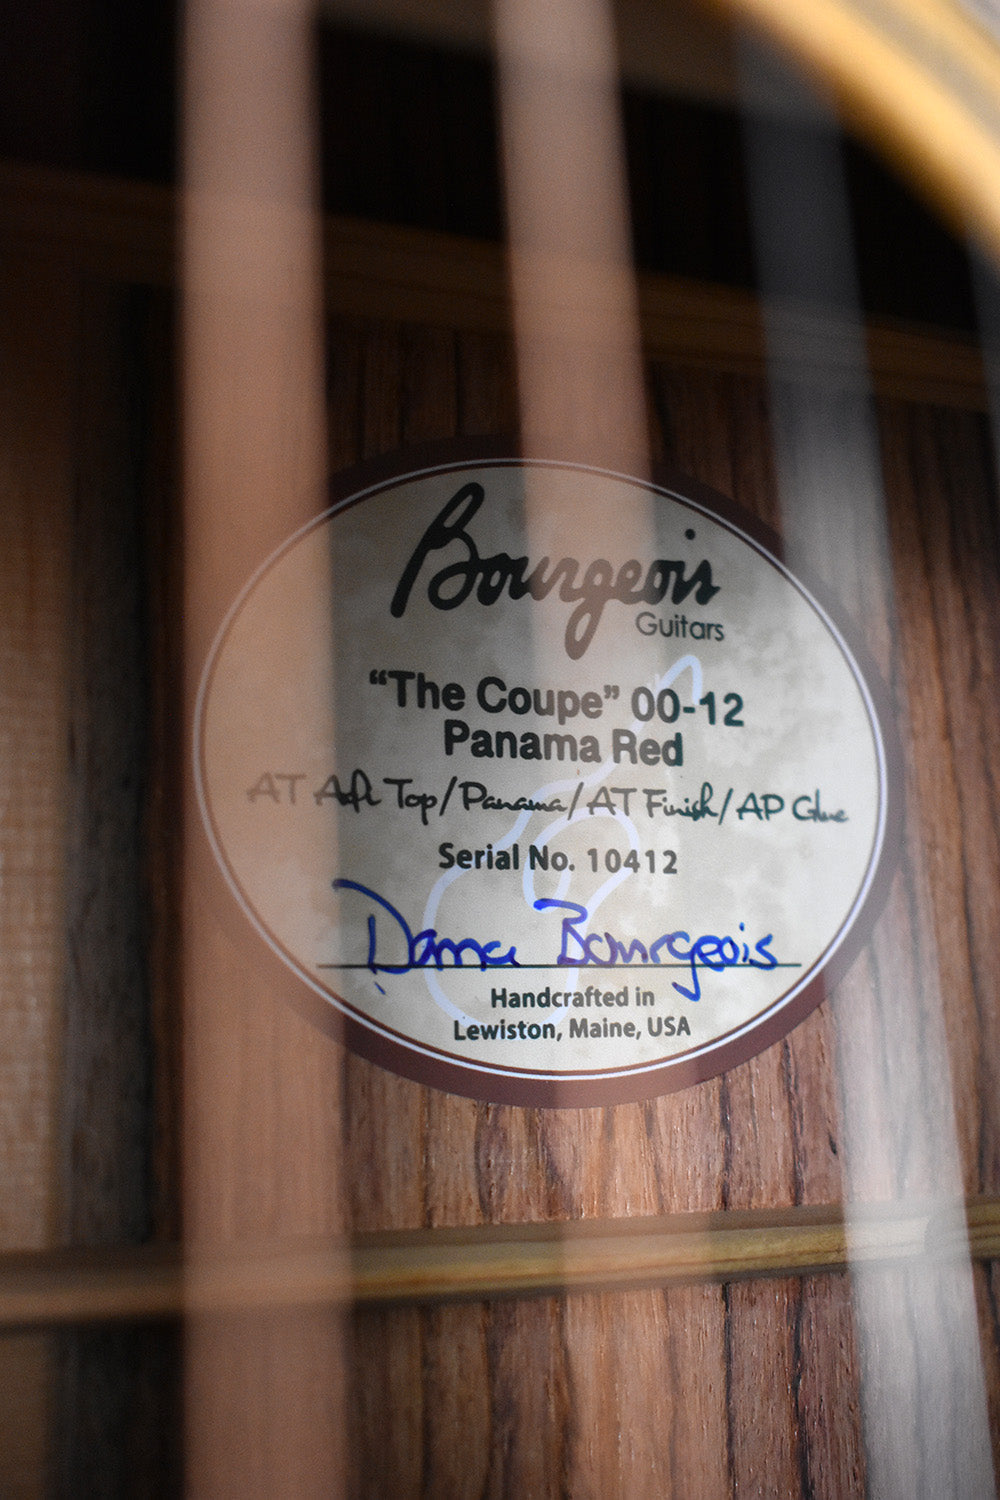 Bourgeois
Guitars
“The Coupe” 00-12
Panama Red
AT Top/Panama/AT Finish/AP Glue
Serial No. 10412
Dana Bourgeois
Handcrafted in
Lewiston, Maine, USA